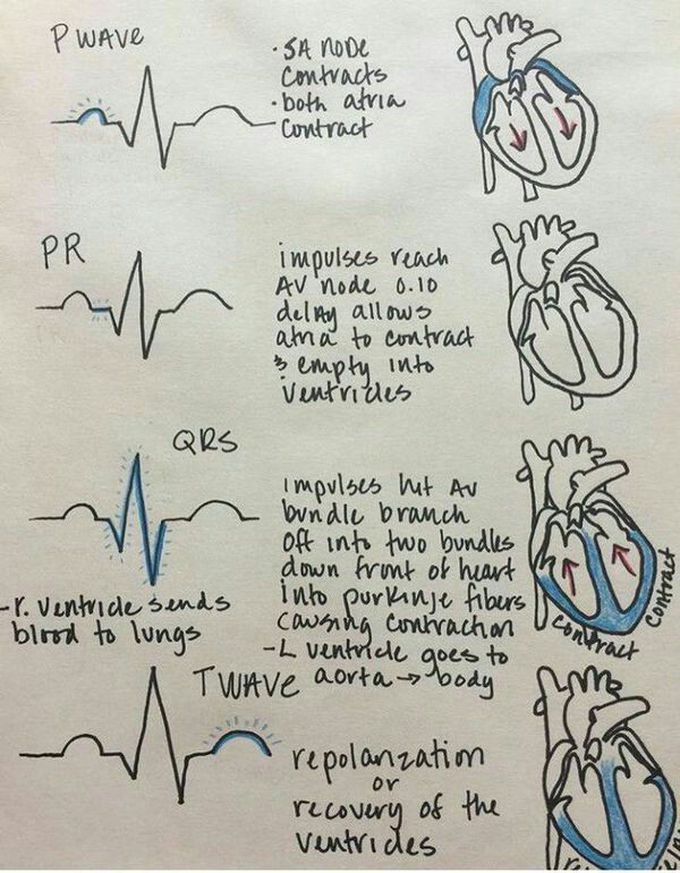 P WAVE
· SA NODE
Contracts
· both atria
Contract
PR
impulses reach
AV node 0.10
delay allows
atria to contract
& empty into
ventricles
QRS
impulses hit AV
bundle branch
Off into two bundles
down front of heart
into purkinje fibers
causing contraction
- L ventricle goes to
aorta → body
contract
contract
- r. ventricle sends
blood to lungs
T WAVE
repolarization
or
recovery of the
ventricles